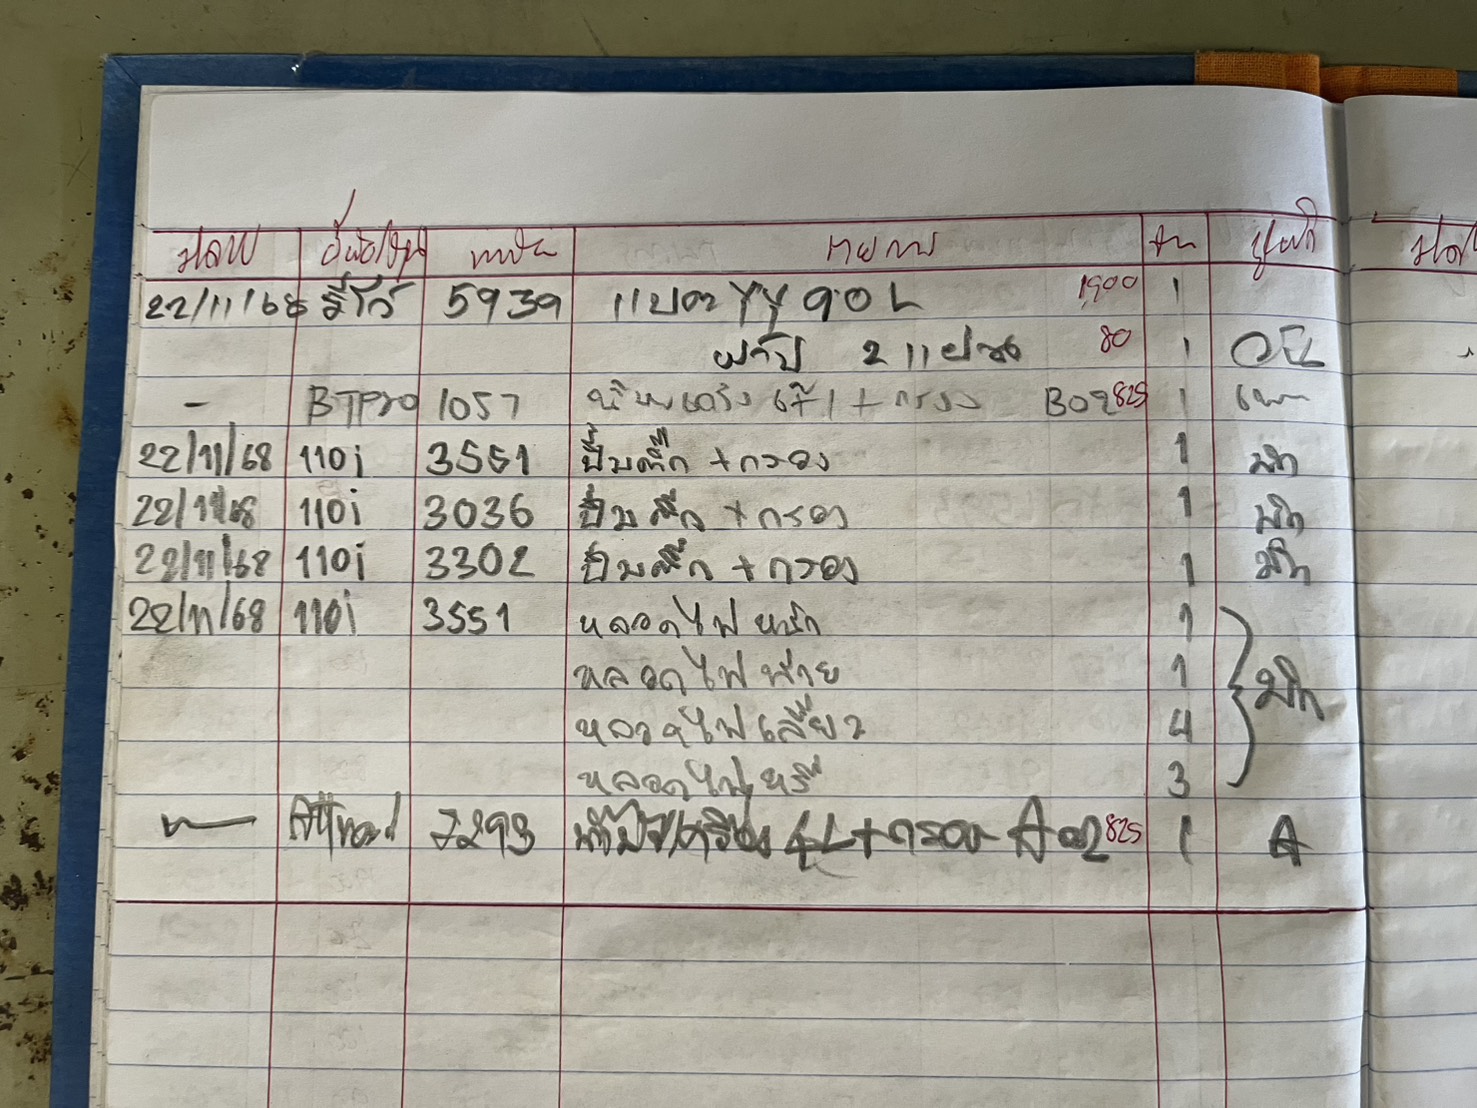 ทะเบียน รายการ
22/11/68 รีโว่ 5939 แบต YY 90L 1,900 1
80 1
- BTPro 1057 น้ำมันเครื่อง 6+1 + กรอง B02 825 1
22/11/68 110i 3551 ปั๊มติ๊ก + กรอง 1 มิก
22/11/68 110i 3036 ปั๊มติ๊ก + กรอง 1 มิก
22/11/68 110i 3302 ปั๊มติ๊ก + กรอง 1 มิก
22/11/68 110i 3551 หลอดไฟหน้า 1
หลอดไฟท้าย 1 มิก
หลอดไฟเลี้ยว 4
หลอดไฟหรี่ 3
7293 น้ำมันเครื่อง 4L + กรอง A02 825 1 A